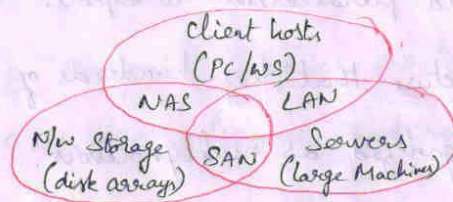 client hosts
(PC/WS)
NAS
LAN
N/w Storage
(disk arrays)
SAN
Servers
(large Machines)